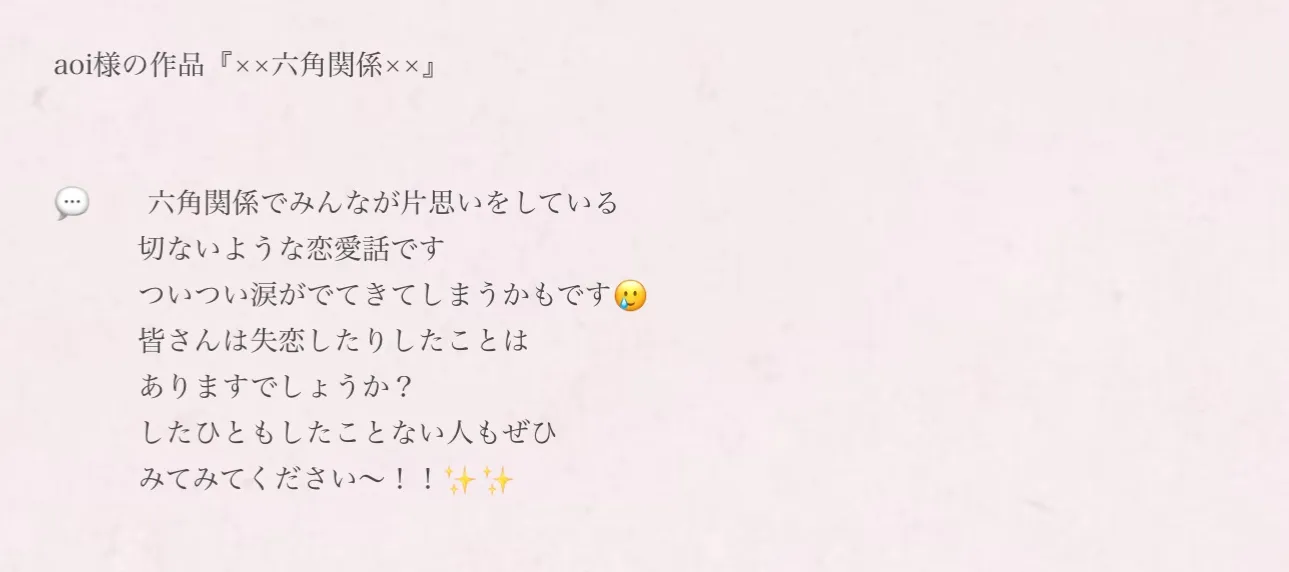 aoi様の作品『××六角関係××』
💬 六角関係でみんなが片思いをしている
切ないような恋愛話です
ついつい涙がでてきてしまうかもです🥲
皆さんは失恋したりしたことは
ありますでしょうか？
したひともしたことない人もぜひ
みてみてください〜！！✨✨